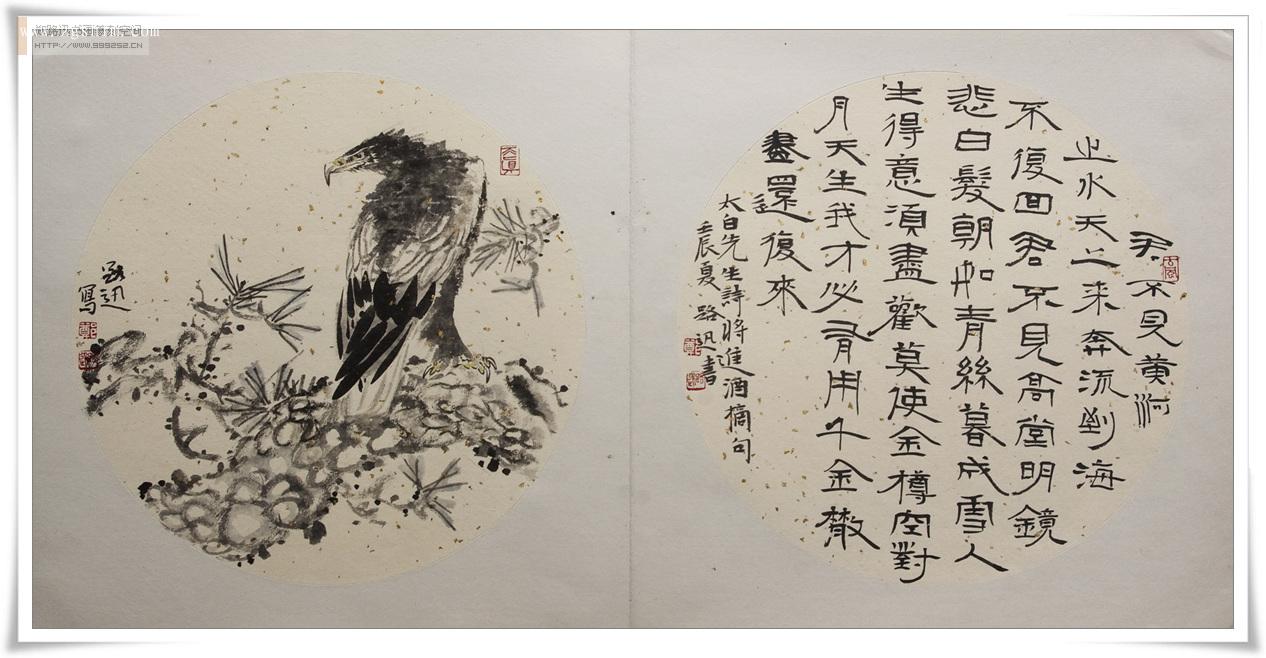 郑路迅书画篆刻空间
HTTP://WWW.999252.CN
君不見黄河
之水天上来奔流到海
不復回君不見高堂明鏡
悲白髮朝如青絲暮成雪人
生得意須盡歡莫使金樽空對
月天生我才必有用千金散
盡還復來
太白先生詩將進酒摘句
壬辰夏 路迅書
路迅
寫